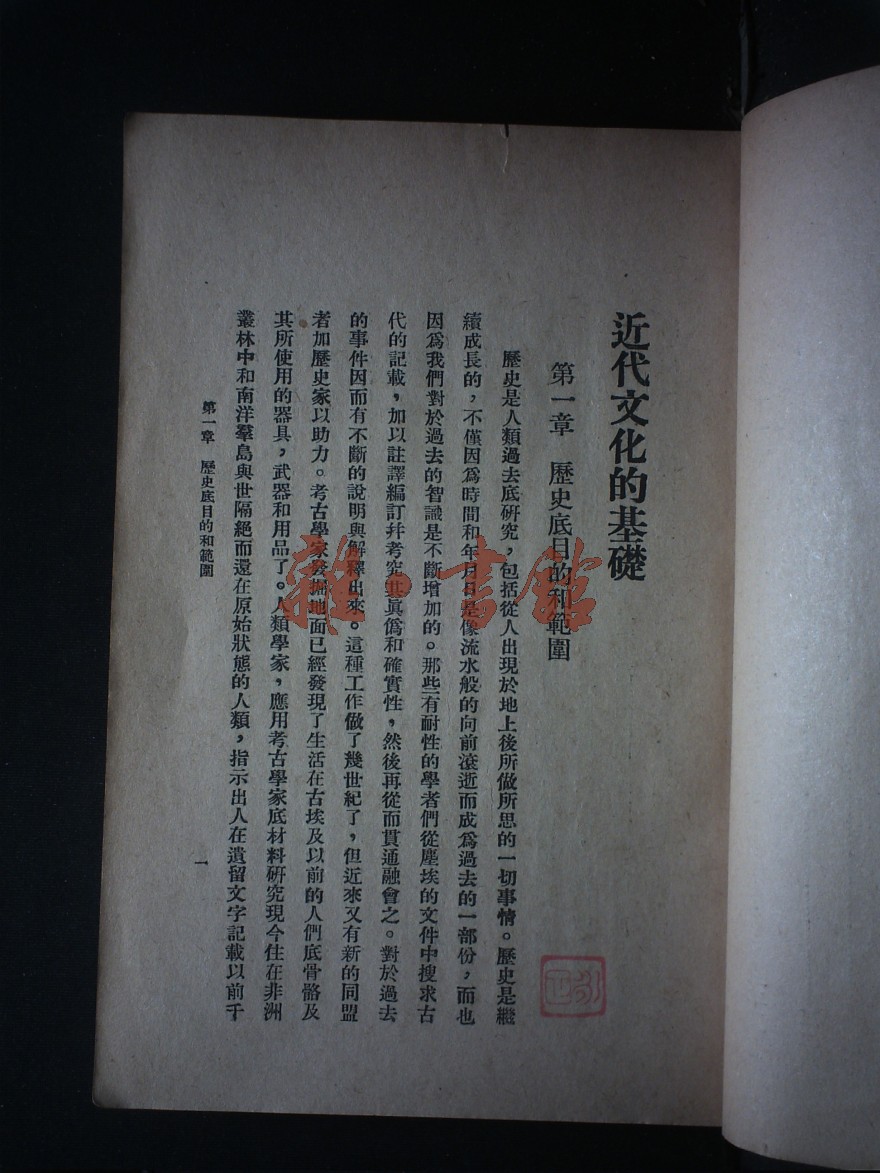 近代文化的基礎
第一章 歷史底目的和範圍
歷史是人類過去底研究，包括從人出現於地上後所做所思的一切事情。歷史是繼
續成長的，不僅因爲時間和年月日是像流水般的向前滾逝而成爲過去的一部份，而也
因爲我們對於過去的智識是不斷增加的。那些有耐性的學者們從塵埃的文件中搜求古
代的記載，加以註譯編訂幷考究其眞僞和確實性，然後再從而貫通融會之。對於過去
的事件因而有不斷的說明與解釋出來。這種工作做了幾世紀了，但近來又有新的同盟
者加歷史家以助力。考古學家發掘地面已經發現了生活在古埃及以前的人們底骨骼及
其所使用的器具，武器和用品了。人類學家，應用考古學家底材料研究現今住在非洲
叢林中和南洋羣島與世隔絕而還在原始狀態的人類，指示出人在遺留文字記載以前千
第一章 歷史底目的和範圍
一
雜·書館